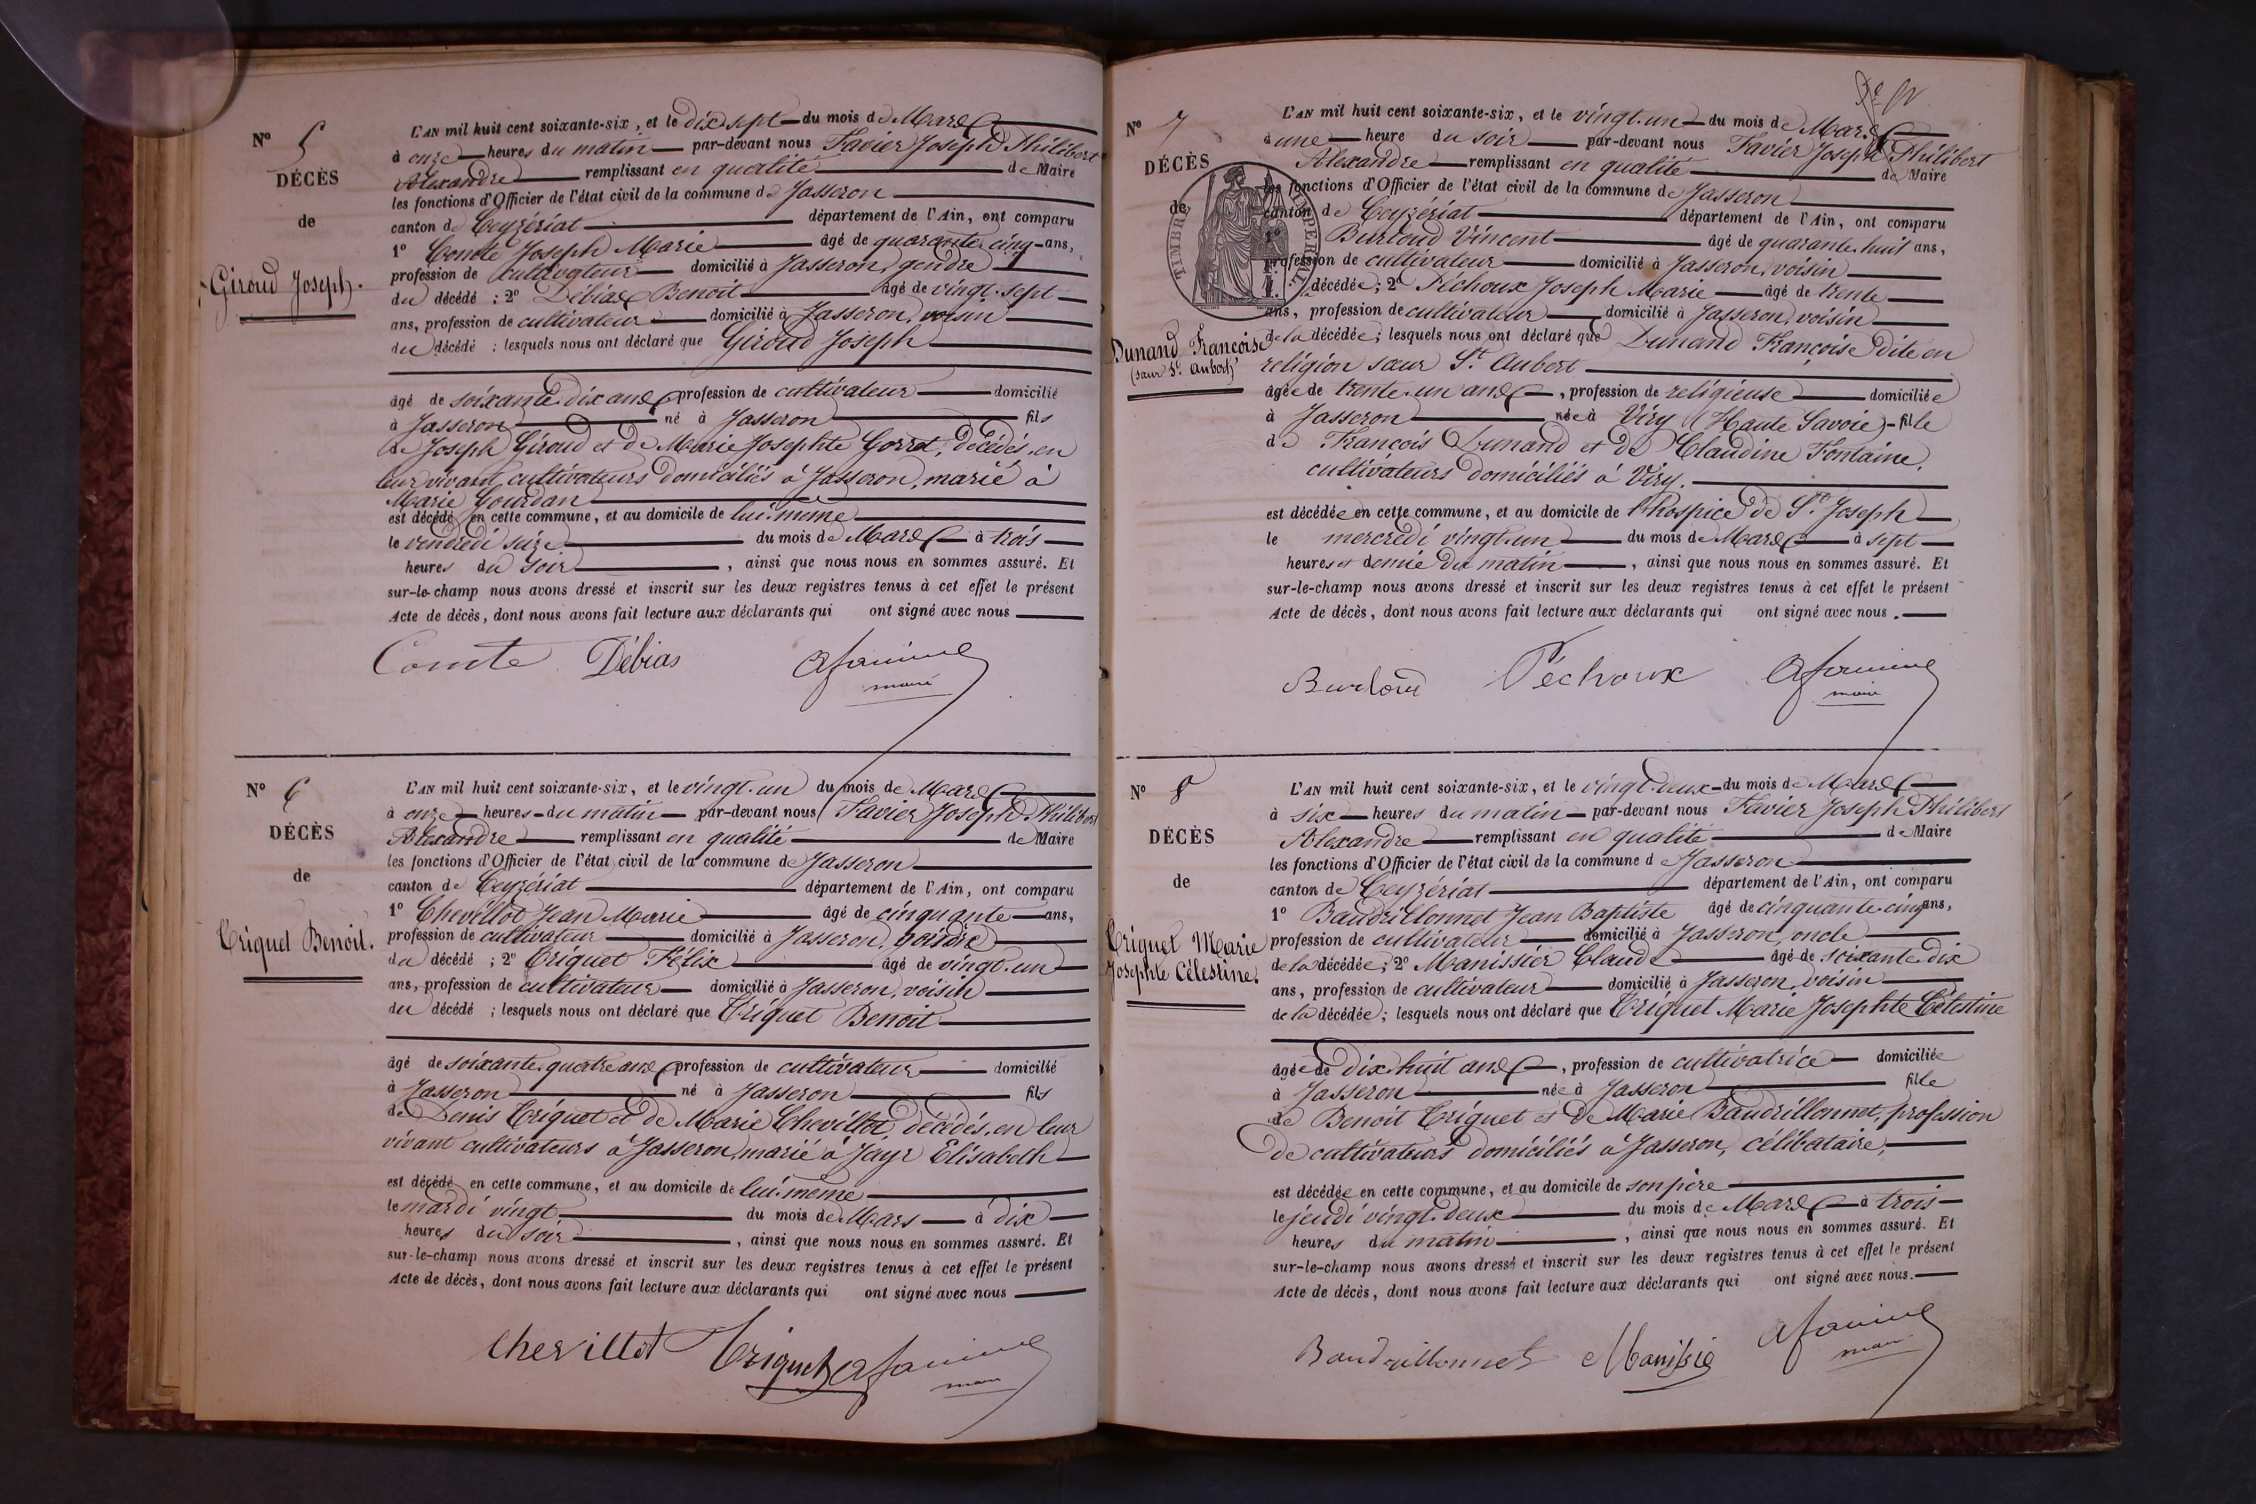 Nº 5
DÉCÈS
de
Giroud Joseph.
L'AN mil huit cent soixante-six, et le dix sept du mois de Mars
à onze heures du matin par-devant nous Favier Joseph Philibert
Alexandre remplissant en qualité de Maire
les fonctions d'Officier de l'état civil de la commune de Jasseron
canton de Ceyzériat département de l'Ain, ont comparu
1º Comte Joseph Marie âgé de quarante cinq ans,
profession de cultivateur domicilié à Jasseron, gendre
du décédé ; 2º Débias Benoit âgé de vingt-sept
ans, profession de cultivateur domicilié à Jasseron, voisin
du décédé ; lesquels nous ont déclaré que Giroud Joseph
âgé de soixante dix ans profession de cultivateur domicilié
à Jasseron né à Jasseron fils
de Joseph Giroud et de Marie Josephte Gorret, décédés, en
leur vivant cultivateurs domiciliés à Jasseron, marié à
Marie Gourdan
est décédé en cette commune, et au domicile de lui-même
le vendredi seize du mois de Mars à trois
heures du soir, ainsi que nous nous en sommes assuré. Et
sur-le-champ nous avons dressé et inscrit sur les deux registres tenus à cet effet le présent
Acte de décès, dont nous avons fait lecture aux déclarants qui ont signé avec nous
Comte Débias
maire
Nº 6
DÉCÈS
de
Triquet Benoit.
L'AN mil huit cent soixante-six, et le vingt-un du mois de Mars
à onze heures du matin par-devant nous Favier Joseph Philibert
Alexandre remplissant en qualité de Maire
les fonctions d'Officier de l'état civil de la commune de Jasseron
canton de Ceyzériat département de l'Ain, ont comparu
1º Chevillot Jean Marie âgé de cinquante ans,
profession de cultivateur domicilié à Jasseron, voisin
du décédé ; 2º Triquet Félix âgé de vingt-un
ans, profession de cultivateur domicilié à Jasseron, voisin
du décédé ; lesquels nous ont déclaré que Triquet Benoit
âgé de soixante quatre ans profession de cultivateur domicilié
à Jasseron né à Jasseron fils
de Denis Triquet et de Marie Chevillot, décédés, en leur
vivant cultivateurs à Jasseron, marié à Jayr Elisabeth
est décédé en cette commune, et au domicile de lui-même
le mardi vingt du mois de Mars à dix
heures du soir, ainsi que nous nous en sommes assuré. Et
sur-le-champ nous avons dressé et inscrit sur les deux registres tenus à cet effet le présent
Acte de décès, dont nous avons fait lecture aux déclarants qui ont signé avec nous
Chevillot Triquet
maire
Nº 7
DÉCÈS
de
Dunand Françoise
(sœur St. Aubert)
TIMBRE IMPERIAL
L'AN mil huit cent soixante-six, et le vingt-un du mois de Mars
à une heure du soir par-devant nous Favier Joseph Philibert
Alexandre remplissant en qualité de Maire
les fonctions d'Officier de l'état civil de la commune de Jasseron
canton de Ceyzériat département de l'Ain, ont comparu
1º Burloud Vincent âgé de quarante-huit ans,
profession de cultivateur domicilié à Jasseron, voisin
de la décédée ; 2º Péchoux Joseph Marie âgé de trente
ans, profession de cultivateur domicilié à Jasseron, voisin
de la décédée ; lesquels nous ont déclaré que Dunand Françoise dite en
religion sœur St. Aubert
âgée de trente-un ans, profession de religieuse domiciliée
à Jasseron née à Viry (Haute Savoie) fille
de François Dunand et de Claudine Fontaine,
cultivateurs domiciliés à Viry.
est décédée en cette commune, et au domicile de l'hospice de St. Joseph
le mercredi vingt-un du mois de Mars à sept
heures et demie du matin, ainsi que nous nous en sommes assuré. Et
sur-le-champ nous avons dressé et inscrit sur les deux registres tenus à cet effet le présent
Acte de décès, dont nous avons fait lecture aux déclarants qui ont signé avec nous.
Burloud Péchoux
maire
Nº 8
DÉCÈS
de
Triquet Marie
Josephte Célestine.
L'AN mil huit cent soixante-six, et le vingt-deux du mois de Mars
à six heures du matin par-devant nous Favier Joseph Philibert
Alexandre remplissant en qualité de Maire
les fonctions d'Officier de l'état civil de la commune de Jasseron
canton de Ceyzériat département de l'Ain, ont comparu
1º Baudrillonnet Jean Baptiste âgé de cinquante-cinq ans,
profession de cultivateur domicilié à Jasseron, oncle
de la décédée ; 2º Manissier Claude âgé de soixante dix
ans, profession de cultivateur domicilié à Jasseron, voisin
de la décédée ; lesquels nous ont déclaré que Triquet Marie Josephte Célestine
âgée de dix-huit ans, profession de cultivatrice domiciliée
à Jasseron née à Jasseron fille
de Benoit Triquet et de Marie Baudrillonnet, profession
de cultivateurs domiciliés à Jasseron, célibataire,
est décédée en cette commune, et au domicile de son père
le jeudi vingt-deux du mois de Mars à trois
heures du matin, ainsi que nous nous en sommes assuré. Et
sur-le-champ nous avons dressé et inscrit sur les deux registres tenus à cet effet le présent
Acte de décès, dont nous avons fait lecture aux déclarants qui ont signé avec nous.
Baudrillonnet Manissié
maire